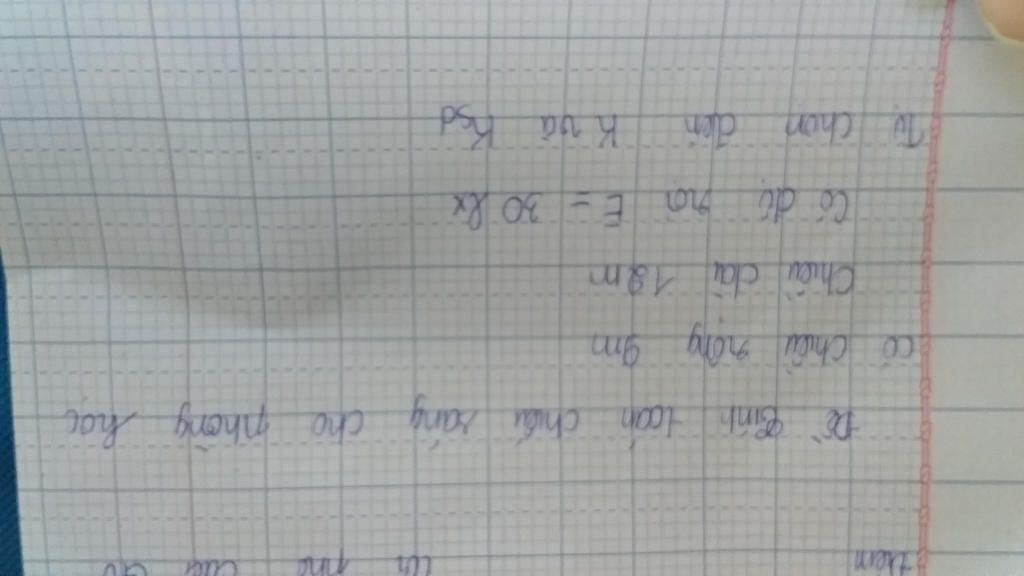 Đề Tính toán chiếu sáng cho phòng học
có chiều rộng 9m
Chiều dài 12m
Có độ rọi E = 30 lx
Tự chọn đèn K và Ksd